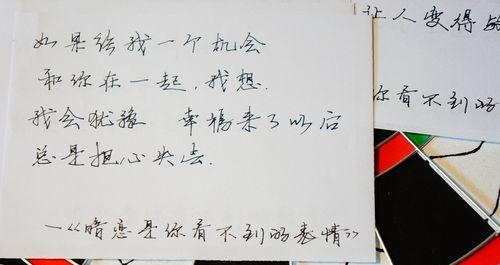 如果给我一个机会
和你在一起，我想.
我会犹豫 幸福来了以后
总是担心失去.
—《暗恋是你看不到的表情》
让人变得
你看不到的